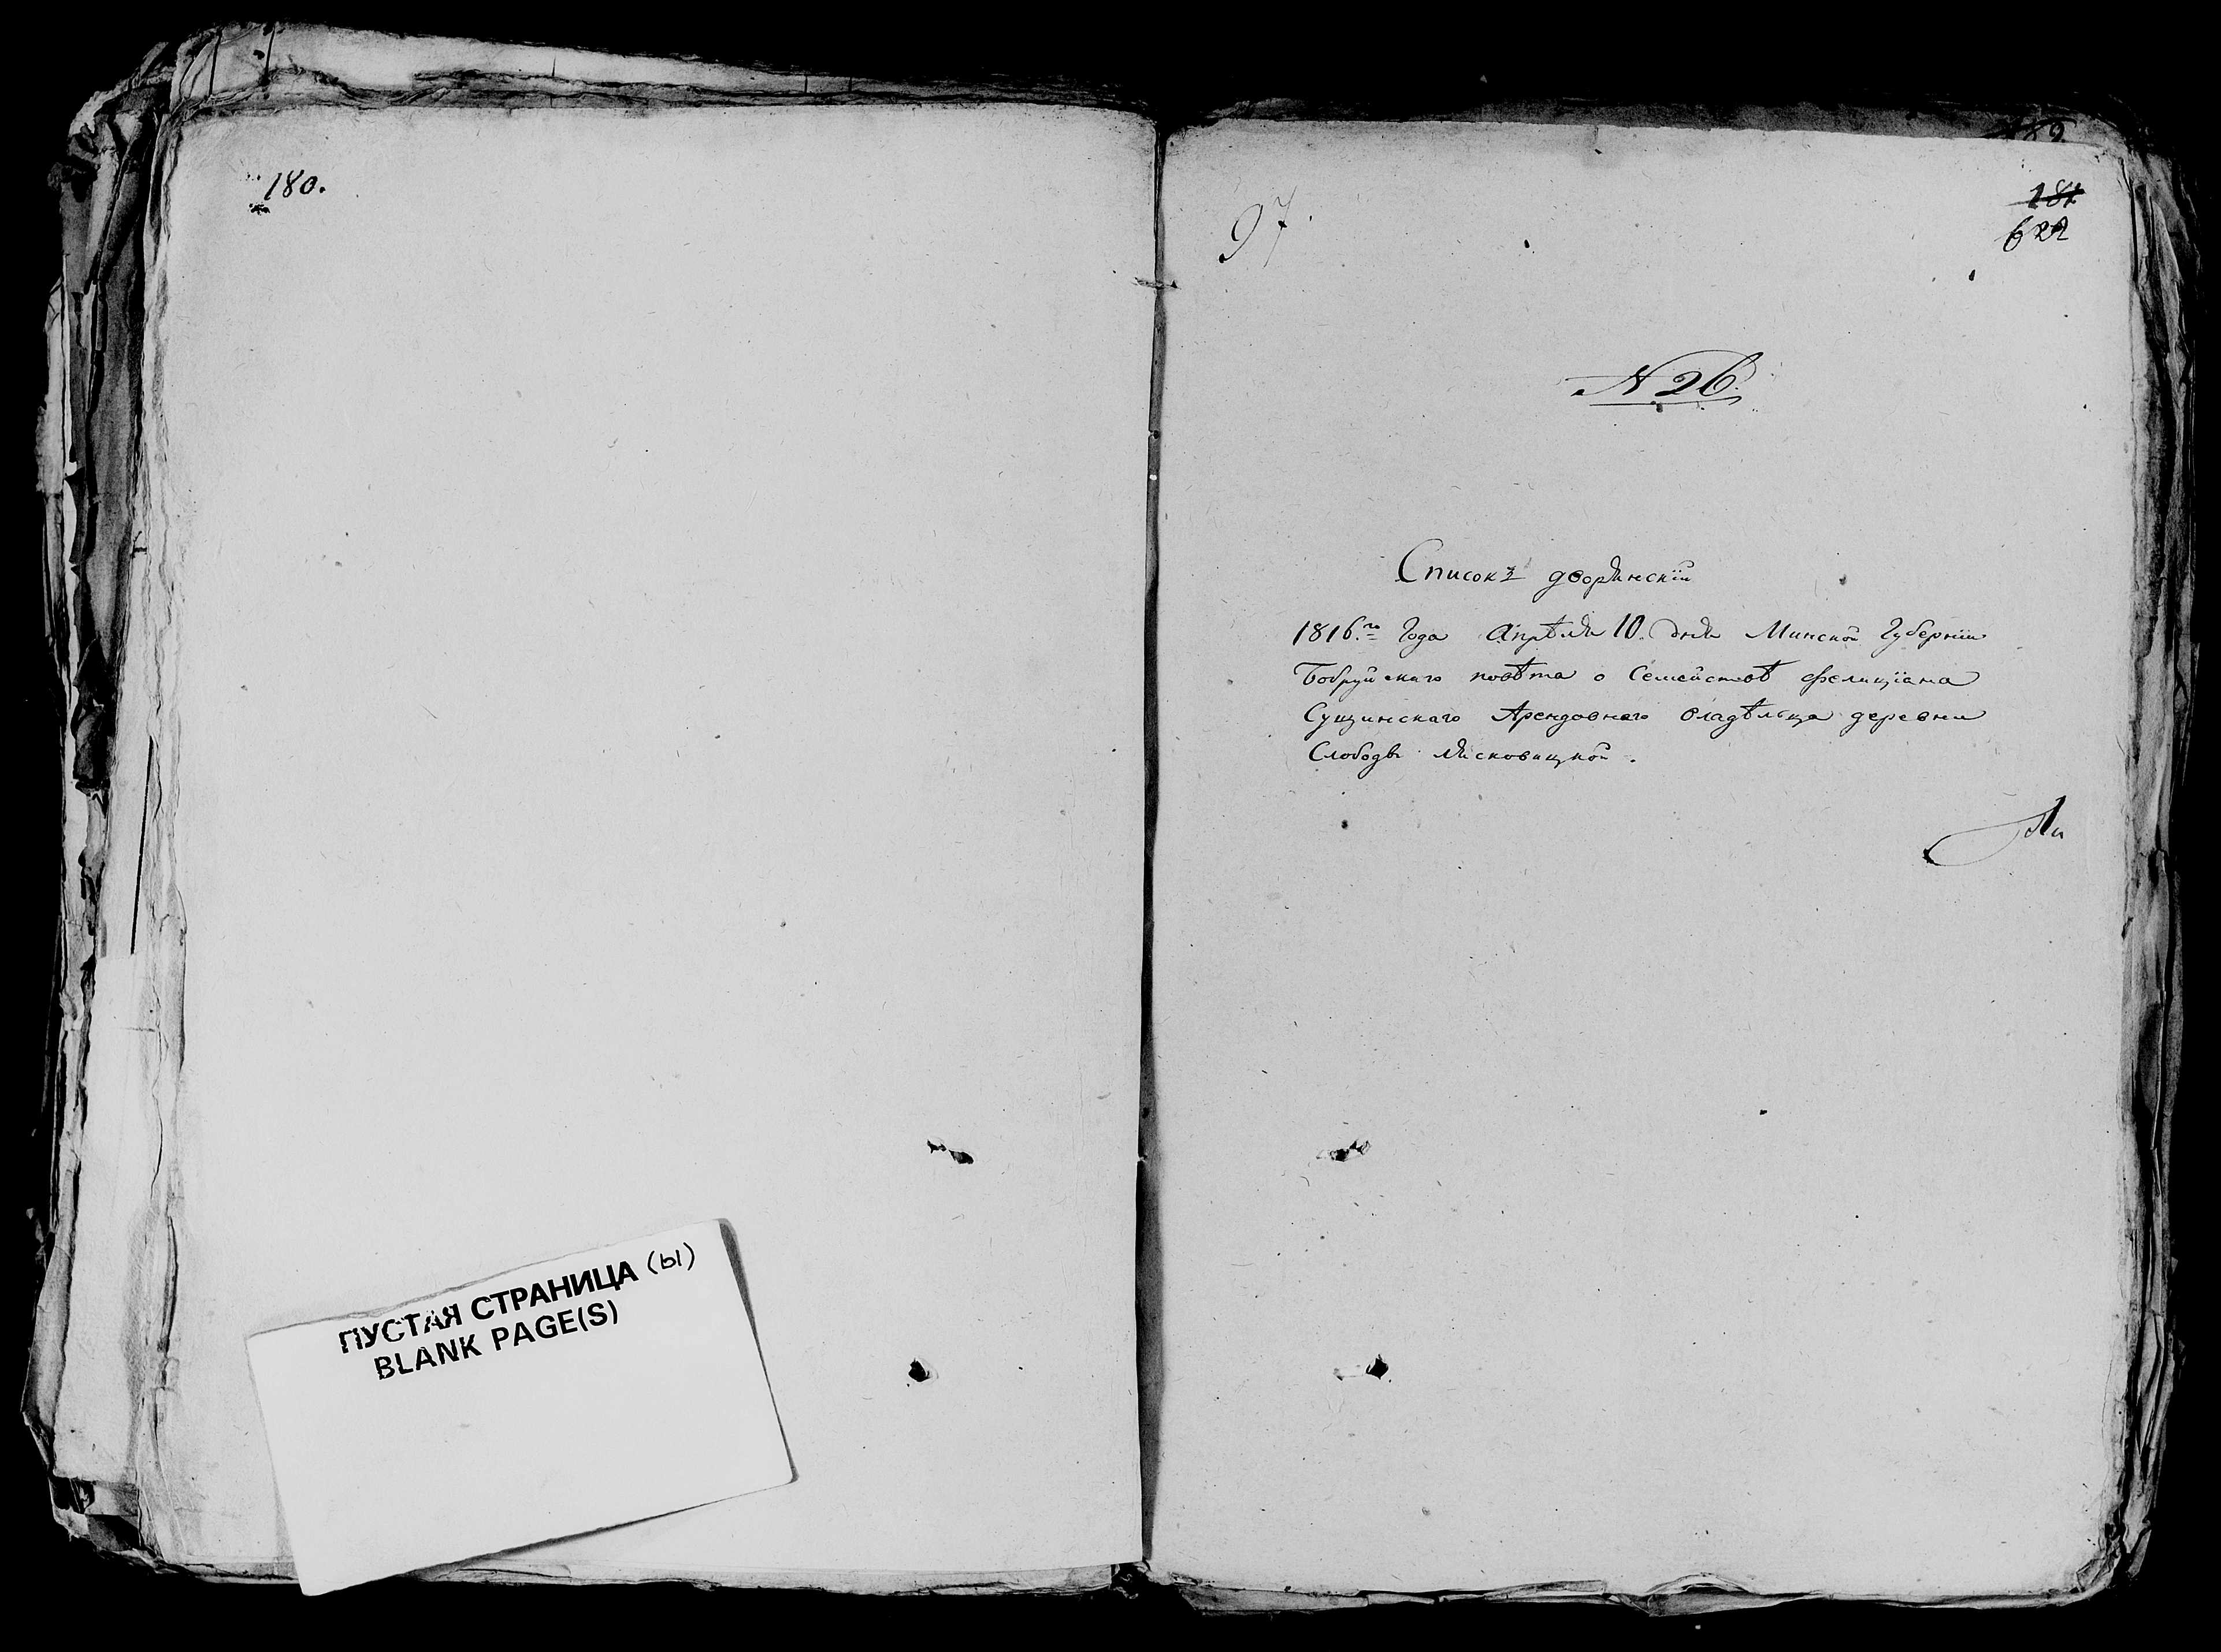 180.
ПУСТАЯ СТРАНИЦА (Ы)
BLANK PAGE(S)
97.
181
622
N 26.
Списокъ дворянскій
1816.го Года Апрѣля 10. дня Минской Губерніи
Бобруйскаго повѣта о Семействѣ Фелиціана
Сущинскаго Арендовнаго владѣльца деревни
Слободы Лясковицкой.